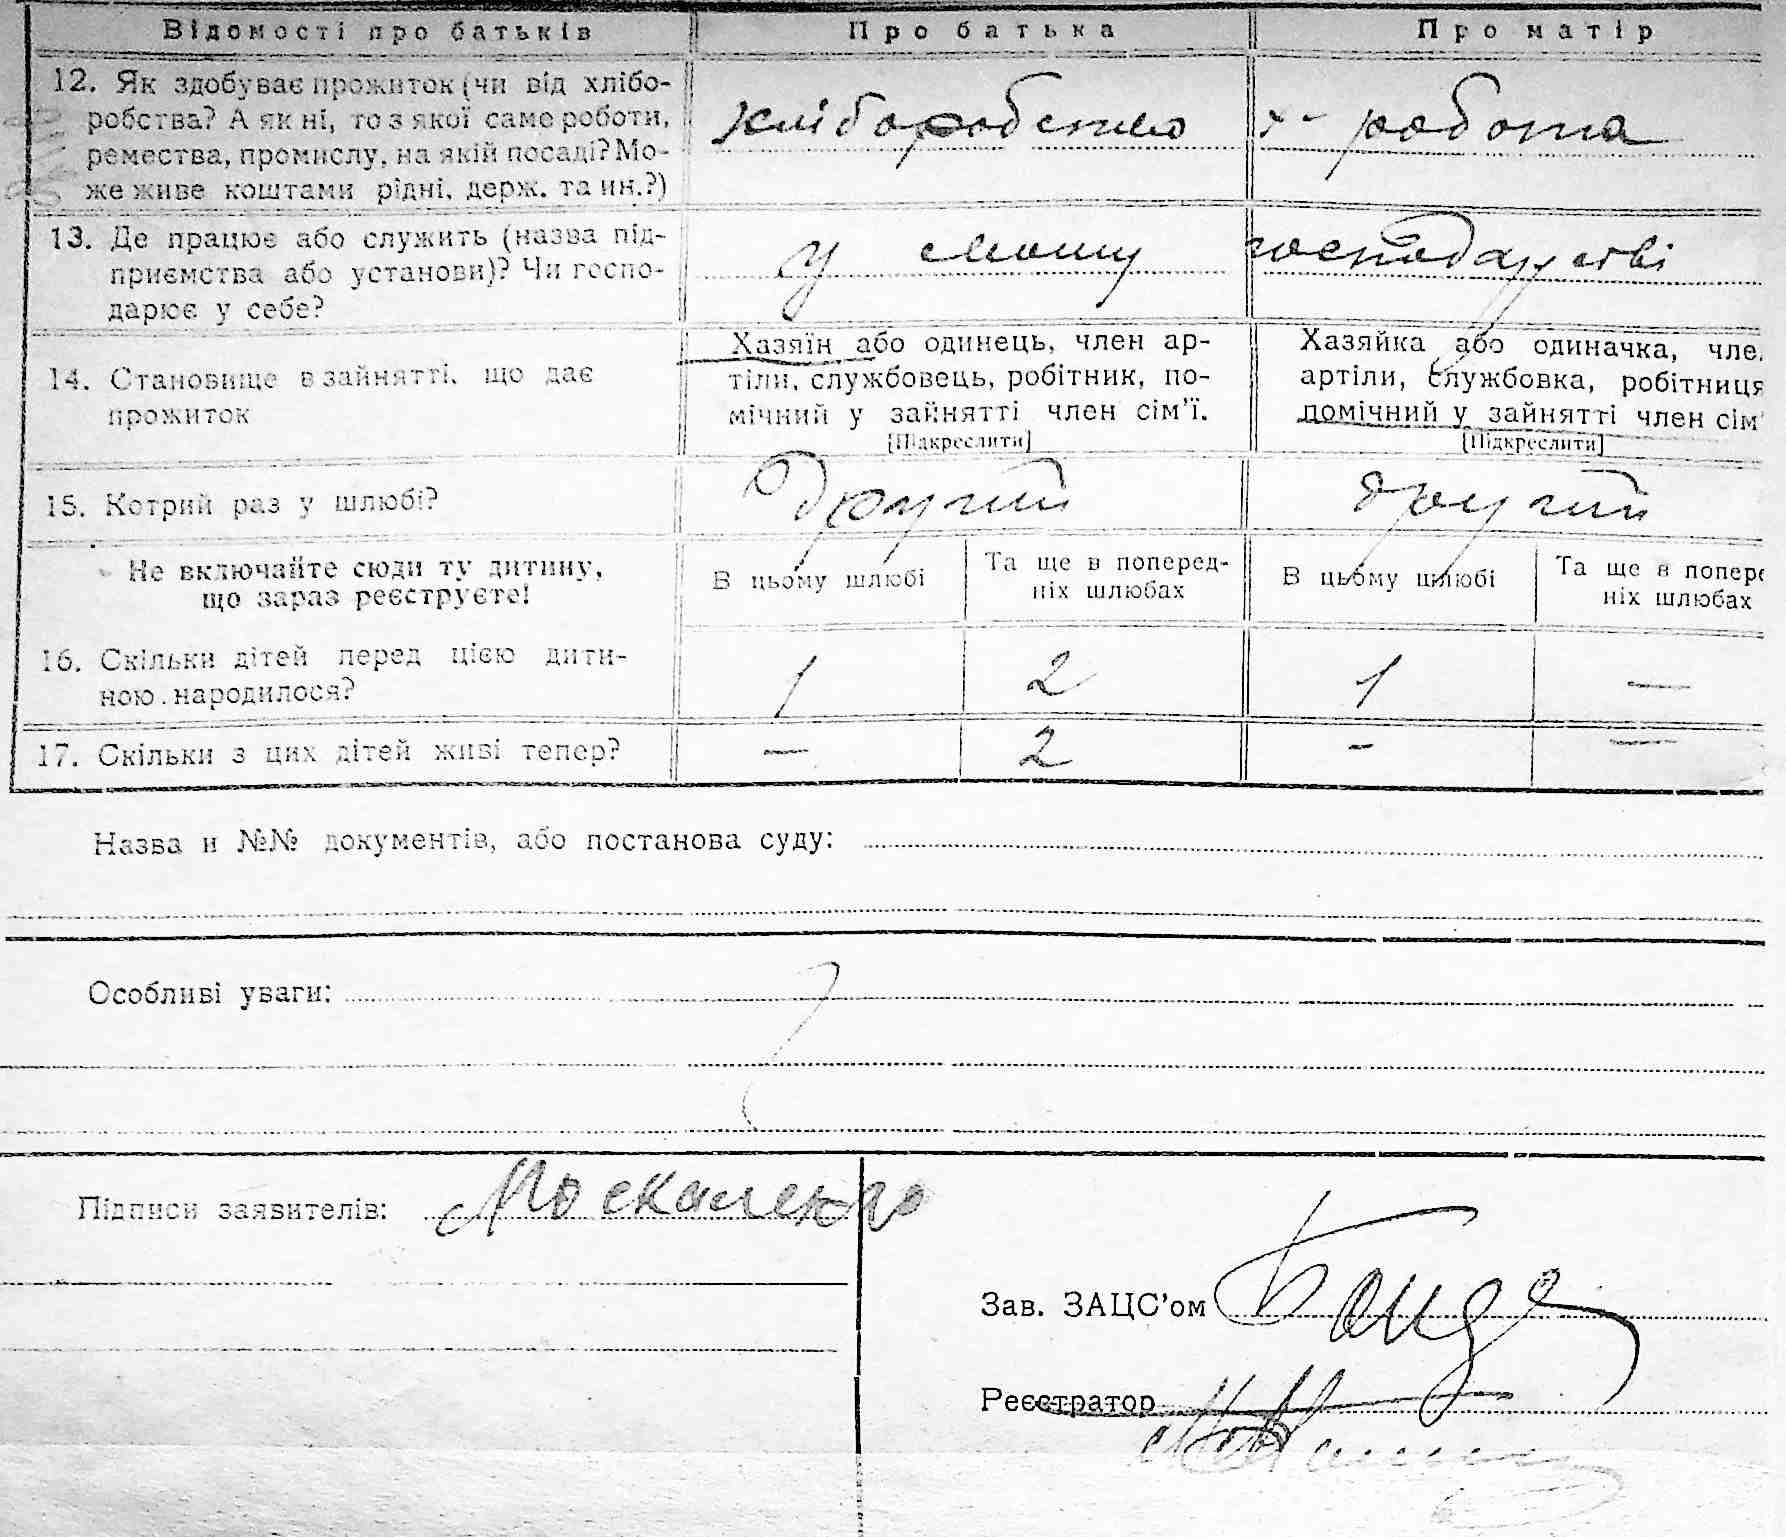 Відомості про батьків Про батька Про матір
12. Як здобуває прожиток (чи від хлібо-
робства? А як ні, то з якої саме роботи,
ремества, промислу, на якій посаді? Мо-
же живе коштами рідні, держ. та ин.?)
хліборобство х- робота
13. Де працює або служить (назва під-
приємства або установи)? Чи госпо-
дарює у себе?
у свому господарстві
14. Становище в зайнятті, що дає
прожиток
Хазяїн або одинець, член ар-
тіли, службовець, робітник, по-
мічний у зайнятті член сім'ї.
[Підкреслити]
Хазяйка або одиначка, чле
артіли, службовка, робітниця
помічний у зайнятті член сім'
[Підкреслити]
15. Котрий раз у шлюбі?
Другий другий
Не включайте сюди ту дитину,
що зараз реєструєте!
В цьому шлюбі
Та ще в поперед-
ніх шлюбах
В цьому шлюбі
Та ще в попере
ніх шлюбах
16. Скільки дітей перед цією дити-
ною народилося?
1 2 1 —
17. Скільки з цих дітей живі тепер?
— 2 - —
Назва и №№ документів, або постанова суду:
Особливі уваги:
Підписи заявителів: Москаленко
Зав. ЗАЦС'ом
Реєстратор